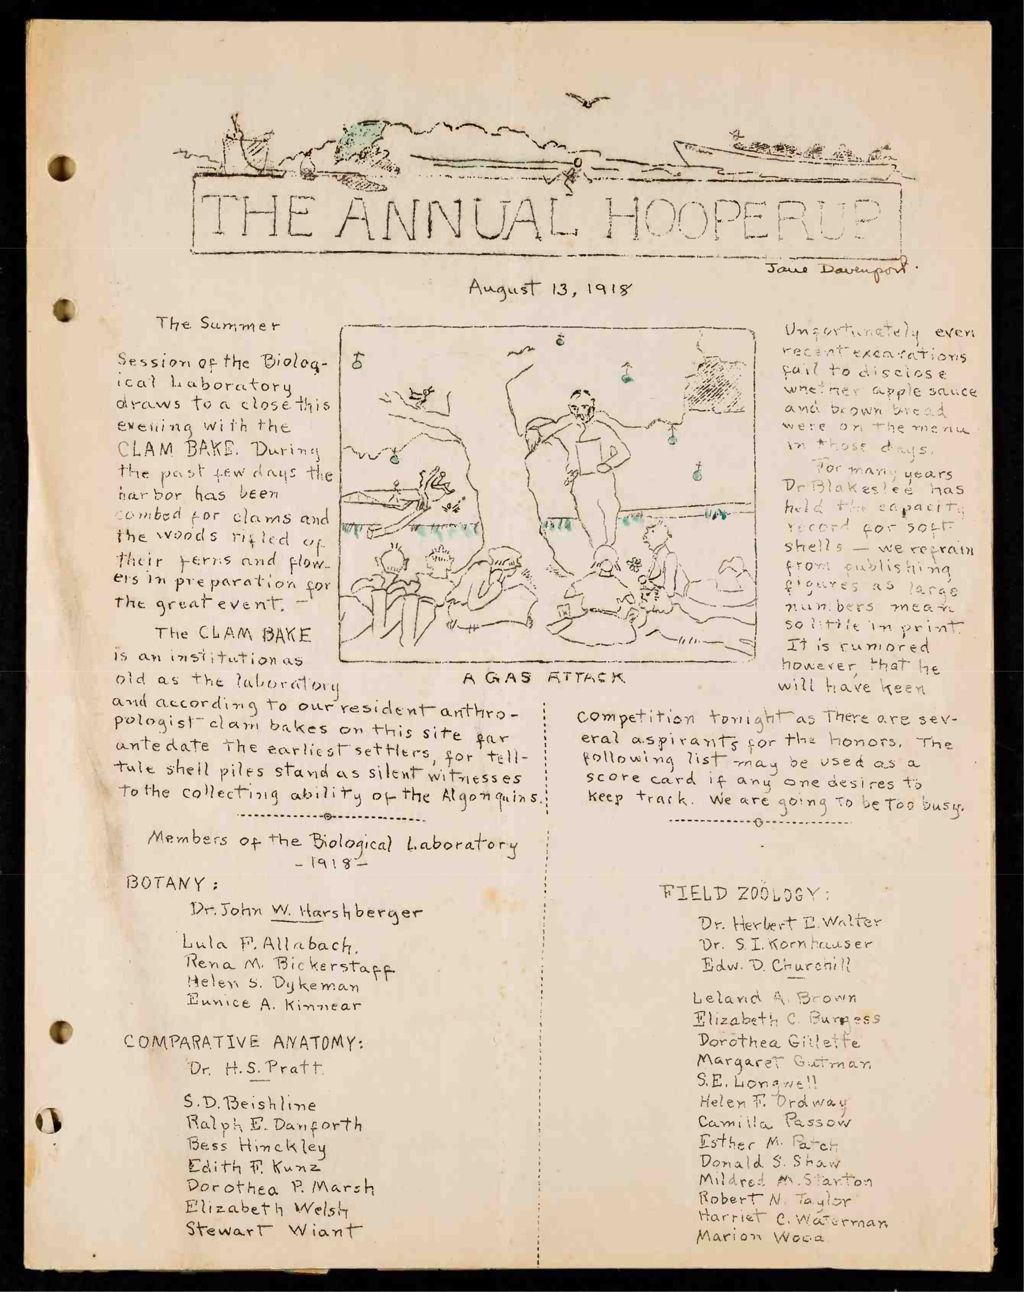 THE ANNUAL HOOPERUP
Jane Davenport.
August 13, 1918
The Summer
Session of the Biolog-
ical Laboratory
draws to a close this
evening with the
CLAM BAKE. During
the past few days the
harbor has been
combed for clams and
the woods rifled of
their ferns and flow-
ers in preparation for
the great event. —
The CLAM BAKE
is an institution as
old as the laboratory
and according to our resident anthro-
pologist clam bakes on this site far
antedate the earliest settlers, for tell-
tule shell piles stand as silent witnesses
to the collecting ability of the Algonquins.
A GAS ATTACK
Unfortunately even
recent excavations
fail to disclose
whether apple sauce
and brown bread
were on the menu
in those days.
For many years
Dr Blakeslee has
held the capacity
record for soft
shells — we refrain
from publishing
figures as large
numbers mean
so little in print.
It is rumored
however, that he
will have keen
competition tonight as There are sev-
eral aspirants for the honors. The
following list may be used as a
score card if any one desires to
keep track. We are going to be too busy.
Members of the Biological Laboratory
- 1918 -
BOTANY:
Dr. John W. Harshberger
Lula F. Allabach.
Rena M. Bickerstaff
Helen S. Dykeman
Eunice A. Kinnear
COMPARATIVE ANATOMY:
Dr. H.S. Pratt
S.D. Beishline
Ralph E. Danforth
Bess Hinckley
Edith F. Kunz
Dorothea P. Marsh
Elizabeth Welsh
Stewart Wiant
FIELD ZOÖLOGY:
Dr. Herbert E. Walter
Dr. S.I. Kornhauser
Edw. D. Churchill
Leland A. Brown
Elizabeth C. Burgess
Dorothea Gillette
Margaret Gutman
S.E. Longwell
Helen F. Ordway
Camilla Passow
Esther M. Patch
Donald S. Shaw
Mildred M. Stanton
Robert N. Taylor
Harriet C. Waterman
Marion Wood